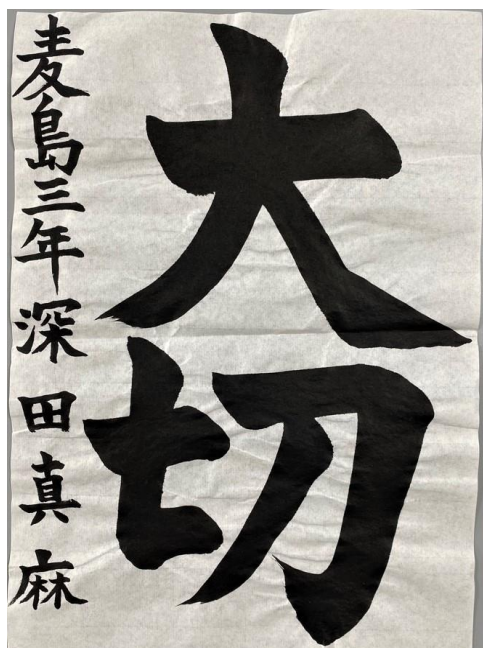 大切
麦島三年深田真麻